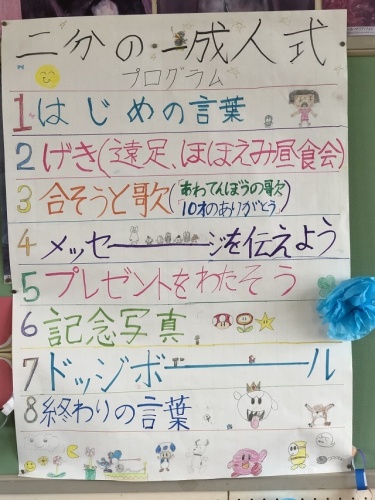 二分の一成人式
プログラム
1 はじめの言葉
2 げき(遠足、ほほえみ昼食会)
3 合そうと歌(「あわてんぼうの歌
「10才のありがとう」)
4 メッセージを伝えよう
5 プレゼントをわたそう
6 記念写真
7 ドッジボール
8 終わりの言葉